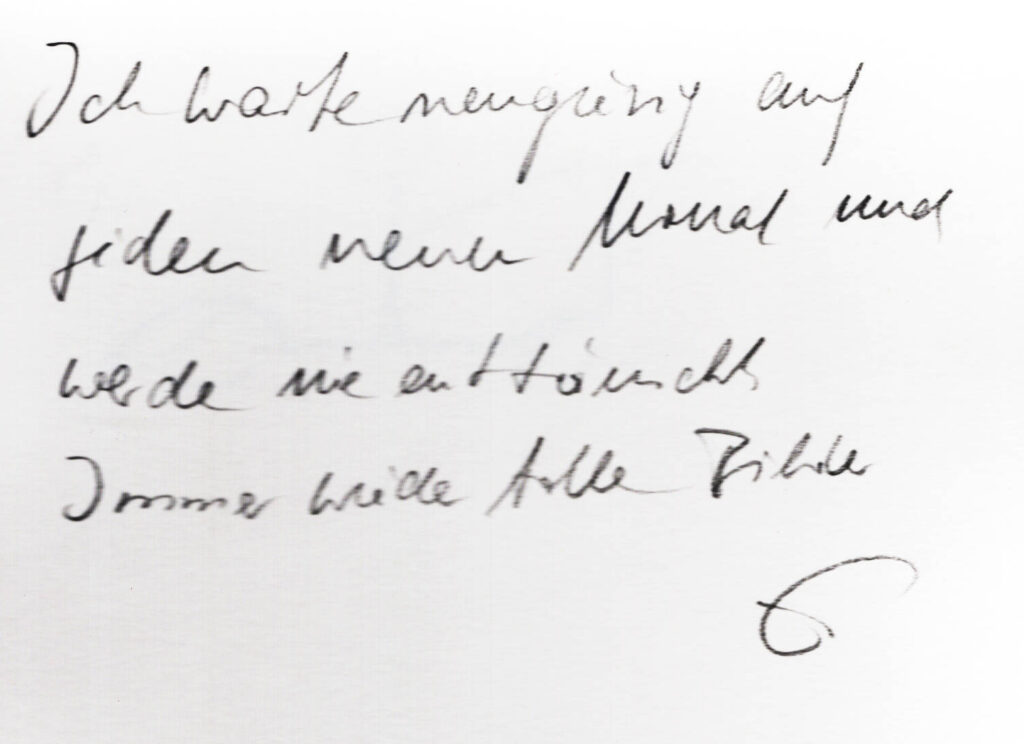 Ich warte neugierig auf
jeden neuen Monat und
werde nie enttäuscht
Immer wieder tolle Bilder